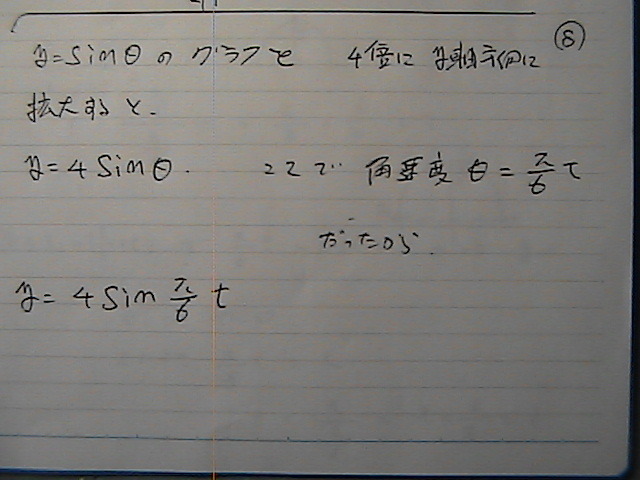 ⑧
y=sinθのグラフを 4倍にy軸方向に
拡大すると、
y=4sinθ. ここで 角度θ=π/6 t
だったから
y=4sin π/6 t